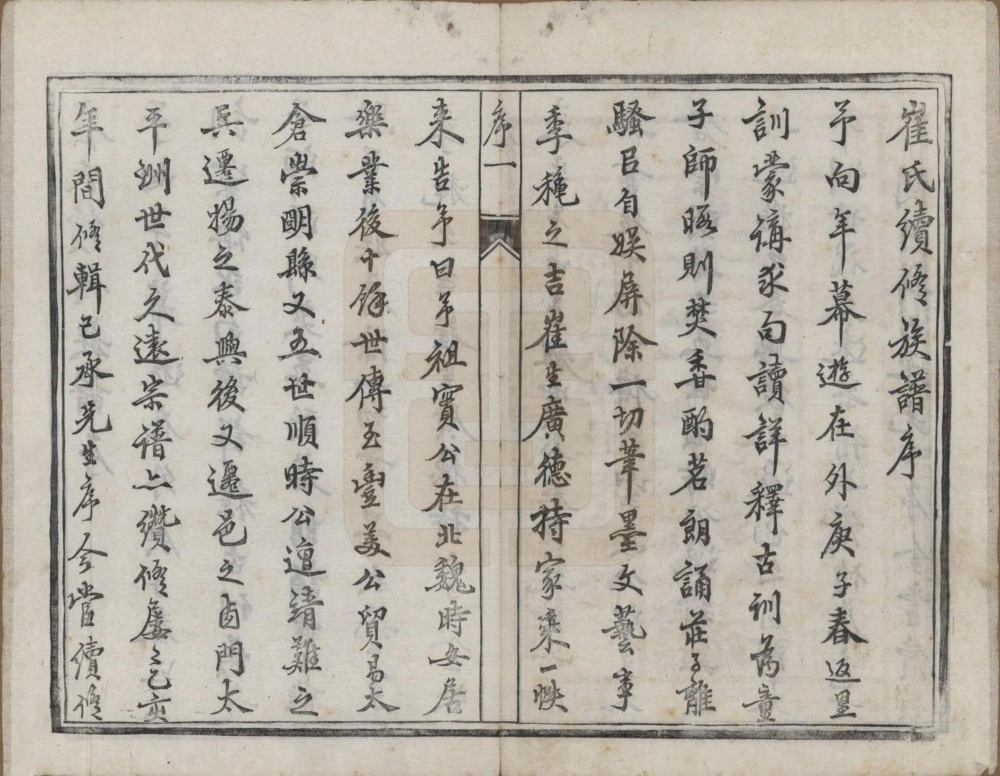 崔氏續修族譜序
予向年幕遊在外庚子春返里
訓蒙講求句讀詳釋古訓為童
子師暇則焚香酌茗朗誦莊子離
騷以自娛屏除一切筆墨文藝事
季穐之吉崔生廣德持家乘一帙
序一
来告予曰予祖實公在北魏時安居
樂業後十餘世傳至豊美公貿易太
倉崇明縣又五世順時公遭靖難之
兵遷揚之泰興後又遷邑之西門太
平洲世代久遠宗譜亦纘修屢屢己亥
年間修輯已承先生序今當續修